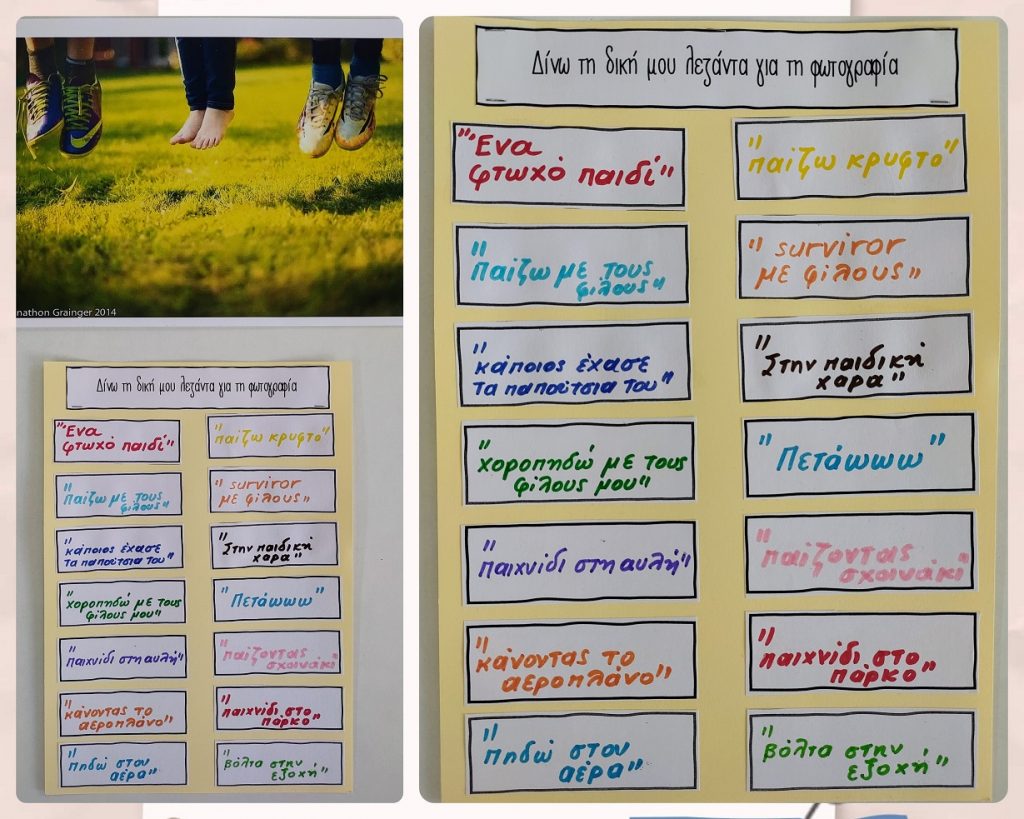 nathon Grainger 2014
Δίνω τη δική μου λεζάντα για τη φωτογραφία
"Ένα
φτωχό παιδί"
"παίζω κρυφτό"
"παίζω με τους
φίλους"
"surviror
με φίλους»
"κάποιος έχασε
τα παπούτσια του"
"Στην παιδική
χαρά"
"χοροπηδώ με τους
φίλους μου"
"Πετάωωω"
"παιχνίδι στη αυλή"
"παίζοντας
σχοινάκι"
"κάνοντας το
αεροπλάνο"
"παιχνίδι στο
πάρκο"
"πηδώ στον
αέρα"
"βόλτα στην
εξοχή"
Δίνω τη δική μου λεζάντα για τη φωτογραφία
"Ένα
φτωχό παιδί"
"παίζω κρυφτό"
"παίζω με τους
φίλους"
"surviror
με φίλους»
"κάποιος έχασε
τα παπούτσια του"
"Στην παιδική
χαρά"
"χοροπηδώ με τους
φίλους μου"
"Πετάωωω"
"παιχνίδι στη αυλή"
"παίζοντας
σχοινάκι"
"κάνοντας το
αεροπλάνο"
"παιχνίδι στο
πάρκο"
"πηδώ στον
αέρα"
"βόλτα στην
εξοχή"